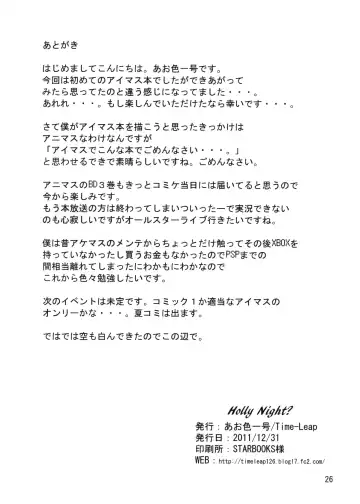 あとがき
はじめましてこんにちは。あお色一号です。
今回は初めてのアイマス本でしたができあがって
みたら思ってたのと違う感じになってました・・・。
あれれ・・・。もし楽しんでいただけたなら幸いです・・・。
さて僕がアイマス本を描こうと思ったきっかけは
アニマスなわけなんですが
「アイマスでこんな本でごめんなさい・・・。」
と思わせるできで素晴らしいですね。ごめんなさい。
アニマスのBD3巻もきっとコミケ当日には届いてると思うので
今から楽しみです。
もう本放送の方は終わってしまいついった―で実況できない
のも心寂しいですがオールスターライブ行きたいですね。
僕は昔アケマスのメンテからちょっとだけ触ってその後XBOXを
持っていなかったし買うお金もなかったのでPSPまでの
間相当離れてしまったにわかもにわかなので
これから色々勉強したいです。
次のイベントは未定です。コミック1か適当なアイマスの
オンリーかな・・・。夏コミは出ます。
ではでは空も白んできたのでこの辺で。
Holly Night?
発行：あお色一号/Time-Leap
発行日：2011/12/31
印刷所：STARBOOKS様
WEB：http://timeleap126.blog17.fc2.com/
26